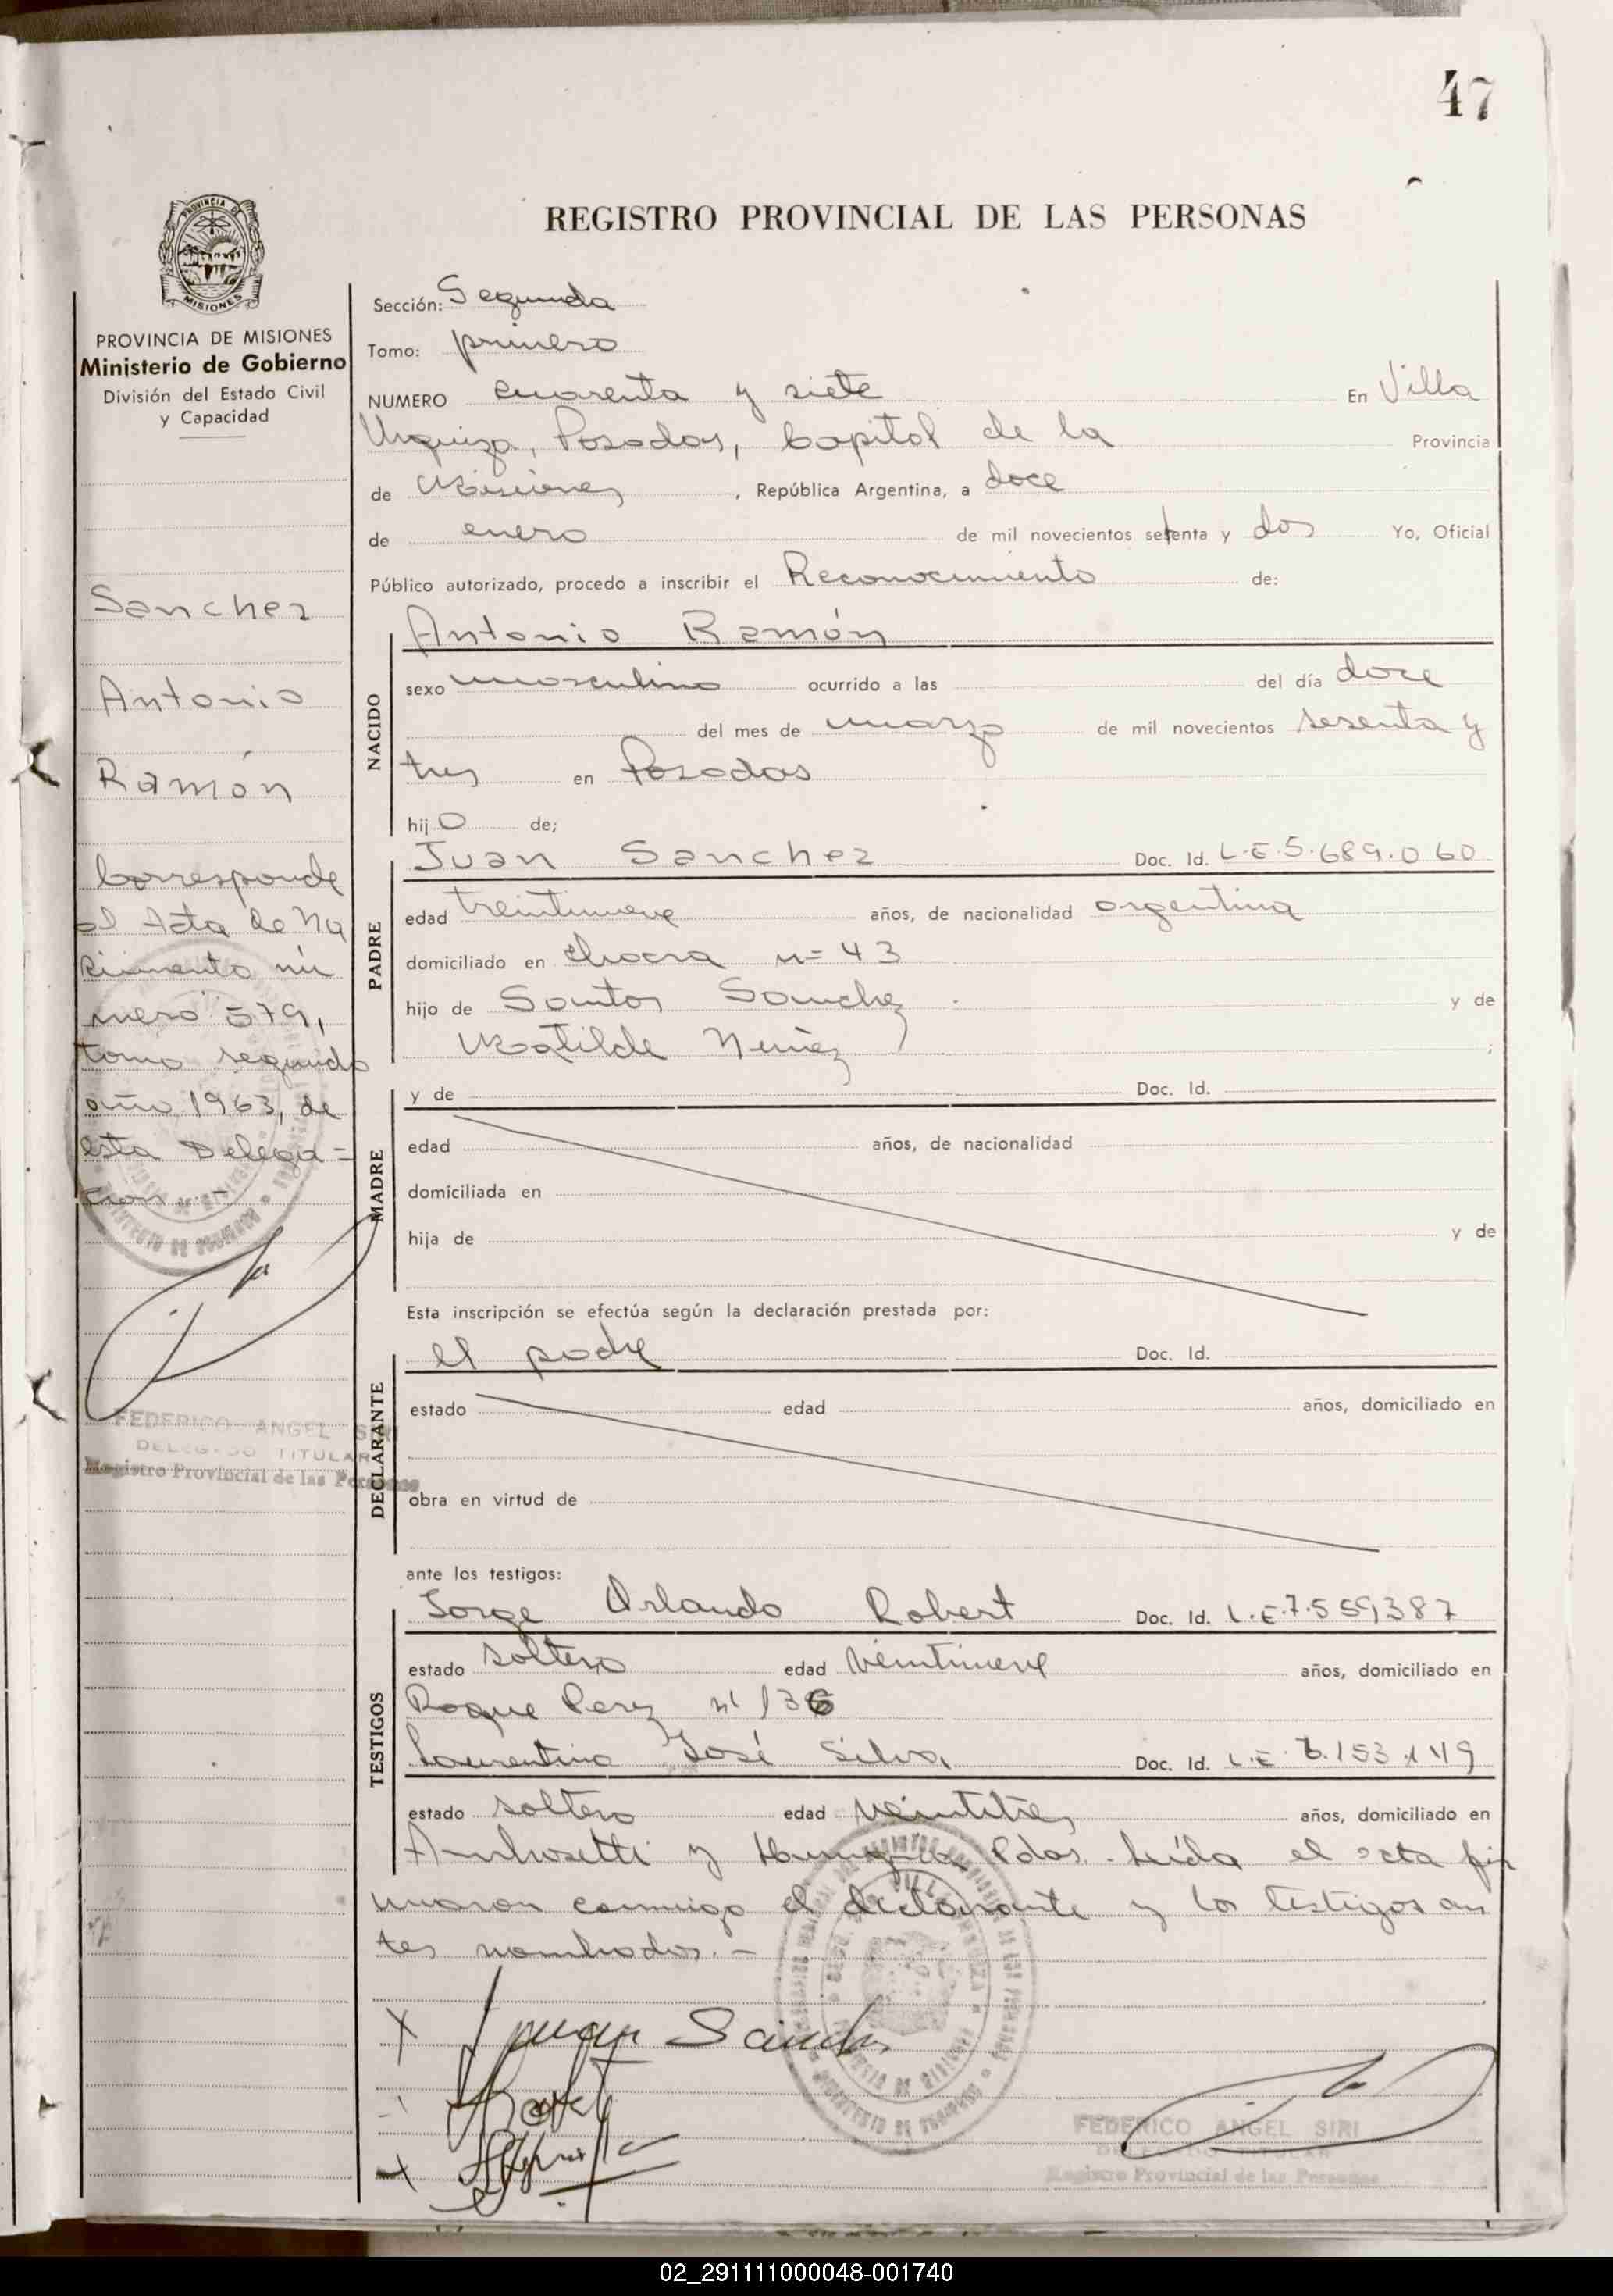 47
REGISTRO PROVINCIAL DE LAS PERSONAS
PROVINCIA DE MISIONES
MISIONES
PROVINCIA DE MISIONES
Ministerio de Gobierno
División del Estado Civil
y Capacidad
Sanchez
Antonio
Ramón
Corresponde
al Acta de Na
cimiento nú
mero 579,
tomo segundo
año 1963, de
esta Delega=
cion.-
FEDERICO ANGEL SIRI
DELEGADO TITULAR
Registro Provincial de las Personas
Sección: Segunda
Tomo: primero
NUMERO cuarenta y siete En Villa
Urquiza, Posadas, Capital de la Provincia
de Misiones, República Argentina, a doce
de enero de mil novecientos setenta y dos Yo, Oficial
Público autorizado, procedo a inscribir el Reconocimiento de:
NACIDO
Antonio Ramón
sexo masculino ocurrido a las del día doce
del mes de marzo de mil novecientos sesenta y
tres en Posadas
hijo de;
PADRE
Juan Sanchez Doc. Id. L.E 5.689.060
edad treintinueve años, de nacionalidad argentina
domiciliado en chacra n= 43
hijo de Santos Sanchez y de
Matilde Nuñez ;
MADRE
y de Doc. Id.
edad años, de nacionalidad
domiciliada en
hija de y de
Esta inscripción se efectúa según la declaración prestada por:
DECLARANTE
el padre Doc. Id.
estado edad años, domiciliado en
obra en virtud de
ante los testigos:
TESTIGOS
Jorge Orlando Robert Doc. Id. L.E.7.559.387
estado soltero edad veintinueve años, domiciliado en
Roque Perez n° 136
Laurentino José Silva Doc. Id. L.E 6.153.149
estado soltero edad veintitres años, domiciliado en
Ambrosetti y Pdas. Leída el acta fir
maron conmigo el declarante y los testigos an
tes nombrados.-
Juan Sanchez
FEDERICO ANGEL SIRI
DELEGADO TITULAR
Registro Provincial de las Personas
02_291111000048-001740